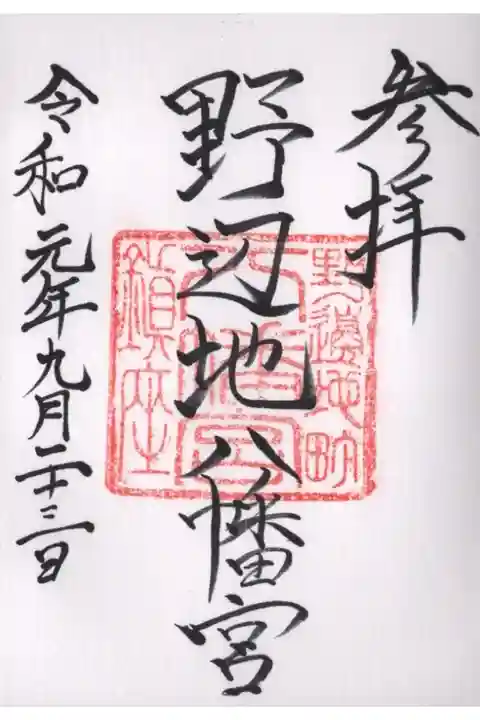 参拝
野辺地八幡宮
野邊地町
八幡宮
鎮座
令和元年九月二十三日